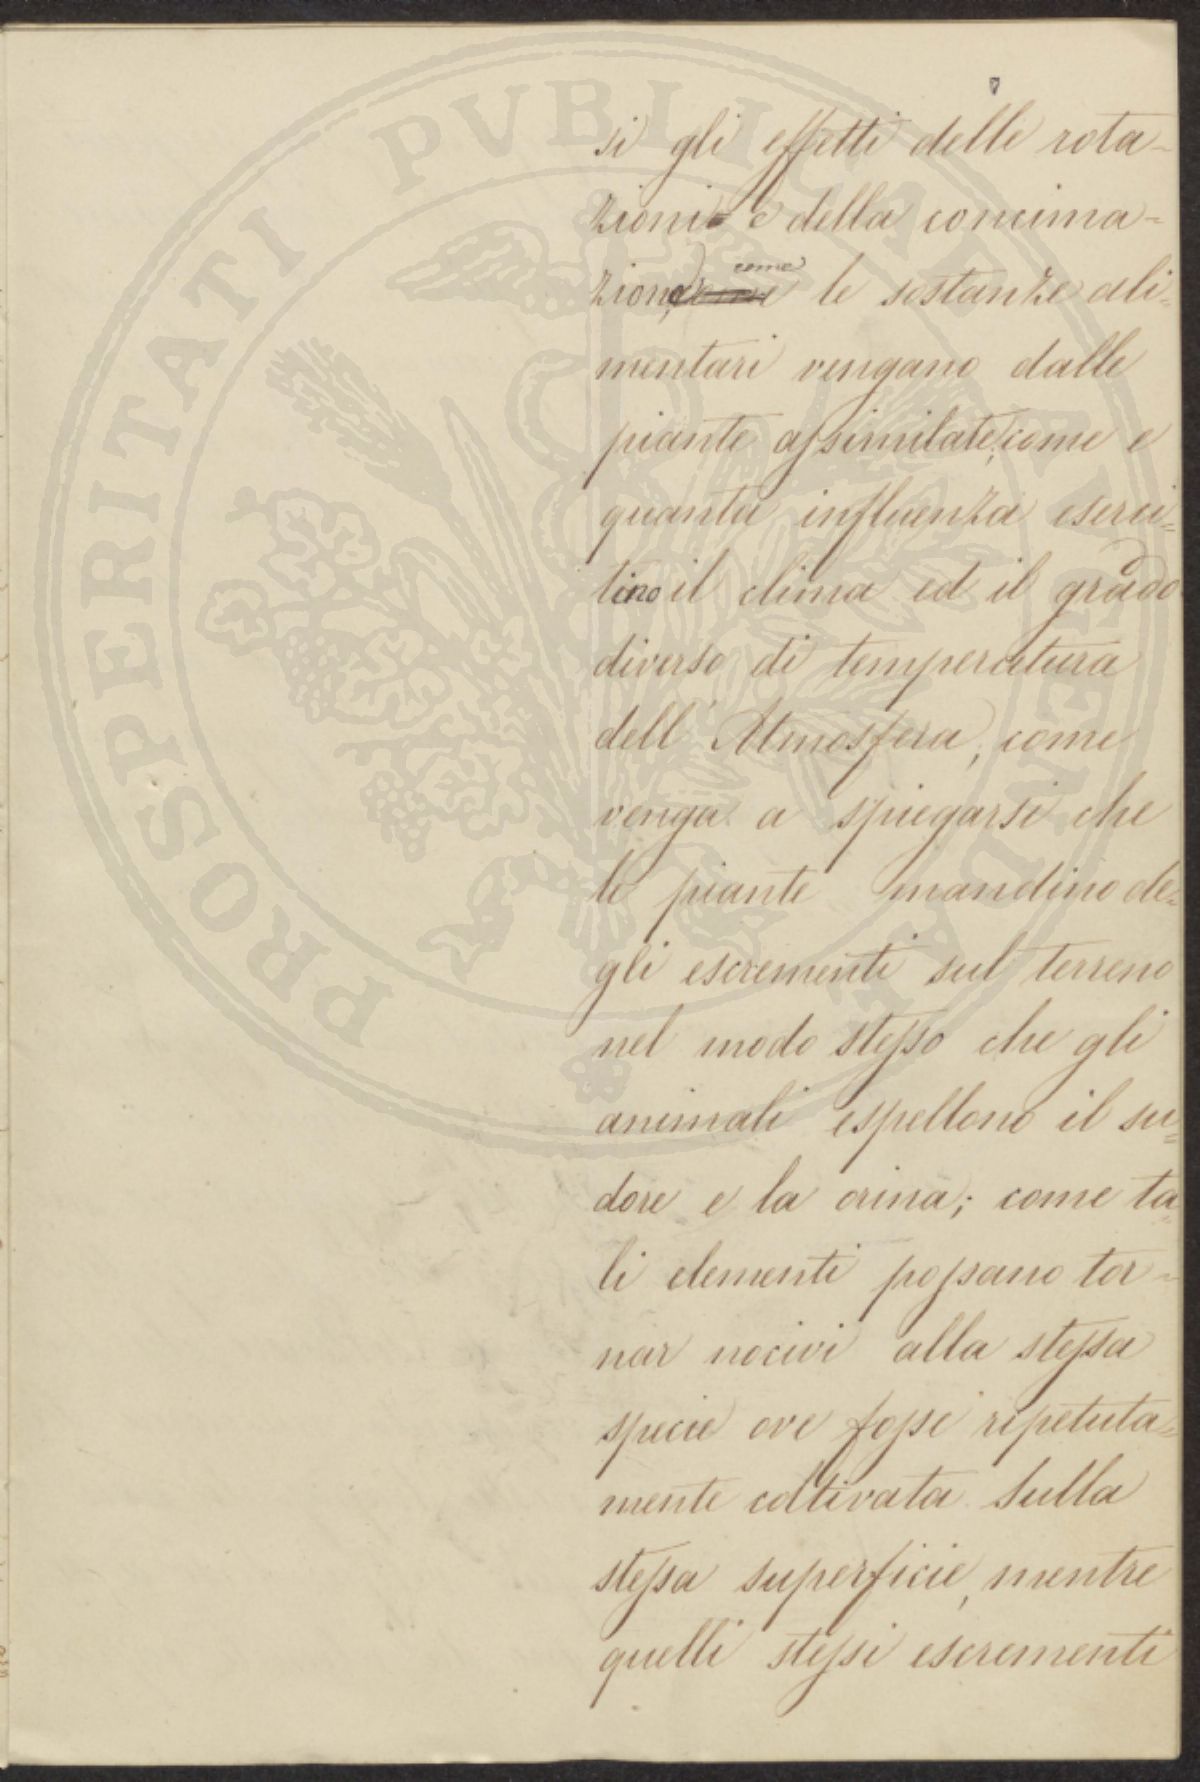 si gli effetti delle rota-
zioni e della concima-
zione, come le sostanze ali-
mentari vengano dalle
piante assimilate, come e
quanta influenza eserci-
tino il clima ed il grado
diverso di temperatura
dell'Atmosfera, come
venga a spiegarsi che
le piante mandino de-
gli escrementi sul terreno
nel modo stesso che gli
animali espellono il su-
dore e la orina; come ta-
li elementi possano tor-
nar nocivi alla stessa
specie ove fosse ripetuta-
mente coltivata sulla
stessa superficie, mentre
quelli stessi escrementi
PROSPERITATI PVBLICAE AVGENDAE